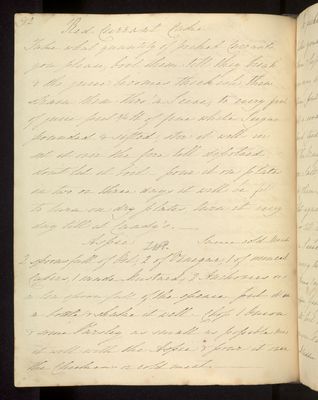 92
Red Currant Cake
Take what quantity of picked Currants
you please, boil them till they break
& the juice becomes thickish, then
strain them thro a Sieve, to every pint
of juice put
pounded & sifted, stir it well in
set it over the fire till dissolved
dont let it boil - pour it on plates
in two or three days it will be fit
to turn on dry plates, turn it every
day till it Candy's.
Aspic Sauce cold Meat
2 spoonsfull of Oil, 2 of Vinegar, 1 of minced
1 made Mustard, 3 Anchovies or
a tea spoonfull of the essence put in
a bottle & shake it well. Chop 1 onion
& some Parsley as small as possible mix
it well with the Aspic & pour it over
the Chicken or cold meat.